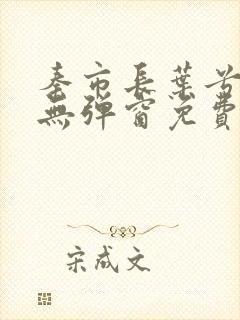 秦市長葉兮
無彈窗免費
宋成文